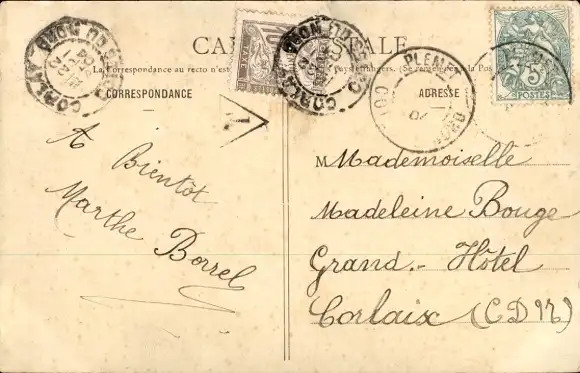 CARTE POSTALE
La Correspondance au recto n'est
Pays étrangers. (Se renseigner à la Poste
CORRESPONDANCE
ADRESSE
TAXE
POSTES
CORLAY
COTES DU NORD
CORLAY
COTES DU NORD
T
A
Bientôt
Marthe Borrel
M Mademoiselle
Madeleine Bouge
Grand-Hôtel
Corlaix (CDN)